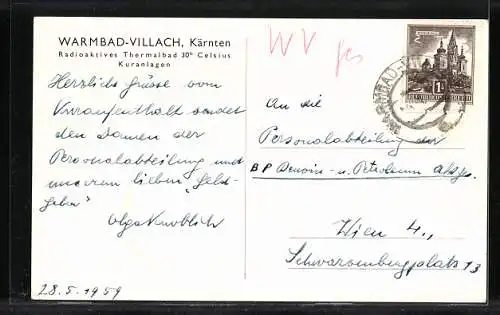 WARMBAD-VILLACH, Kärnten
Radioaktives Thermalbad 30° Celsius
Kuranlagen
Herzliche Grüsse vom
Kuraufenthalt sendet
den Damen der
Personalabteilung und
unserem lieben „Geld-
geber"
Olga Knoblich
28.5.1959
WV
An die
Personalabteilung der
BP Benzin- u. Petroleum Aktges.
Wien 4.,
Schwarzenbergplatz 13
1S
REPUBLIK ÖSTERREICH
WARMBAD